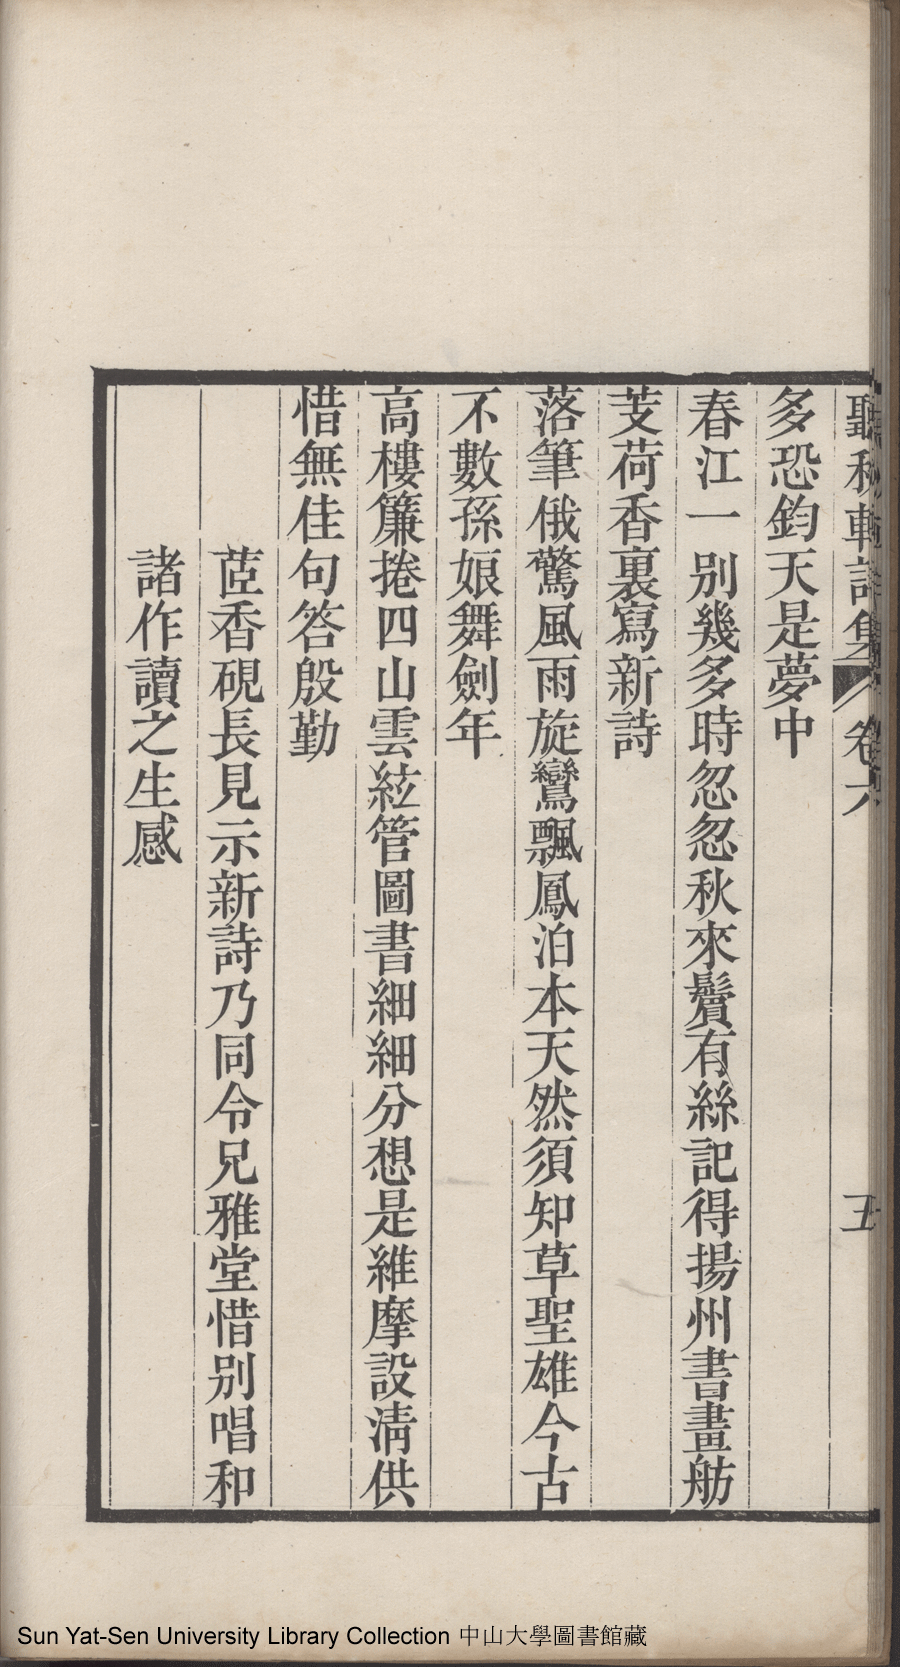 聽秋軒詩集 卷六 五
多恐鈞天是夢中
春江一別幾多時忽忽秋來鬢有絲記得揚州書畫舫
芰荷香裏寫新詩
落筆俄驚風雨旋鸞飄鳳泊本天然須知草聖雄今古
不數孫娘舞劍年
高樓簾捲四山雲絃管圖書細細分想是維摩設清供
惜無佳句答殷勤
茝香硯長見示新詩乃同令兄雅堂惜別唱和
諸作讀之生感
Sun Yat-Sen University Library Collection 中山大學圖書館藏